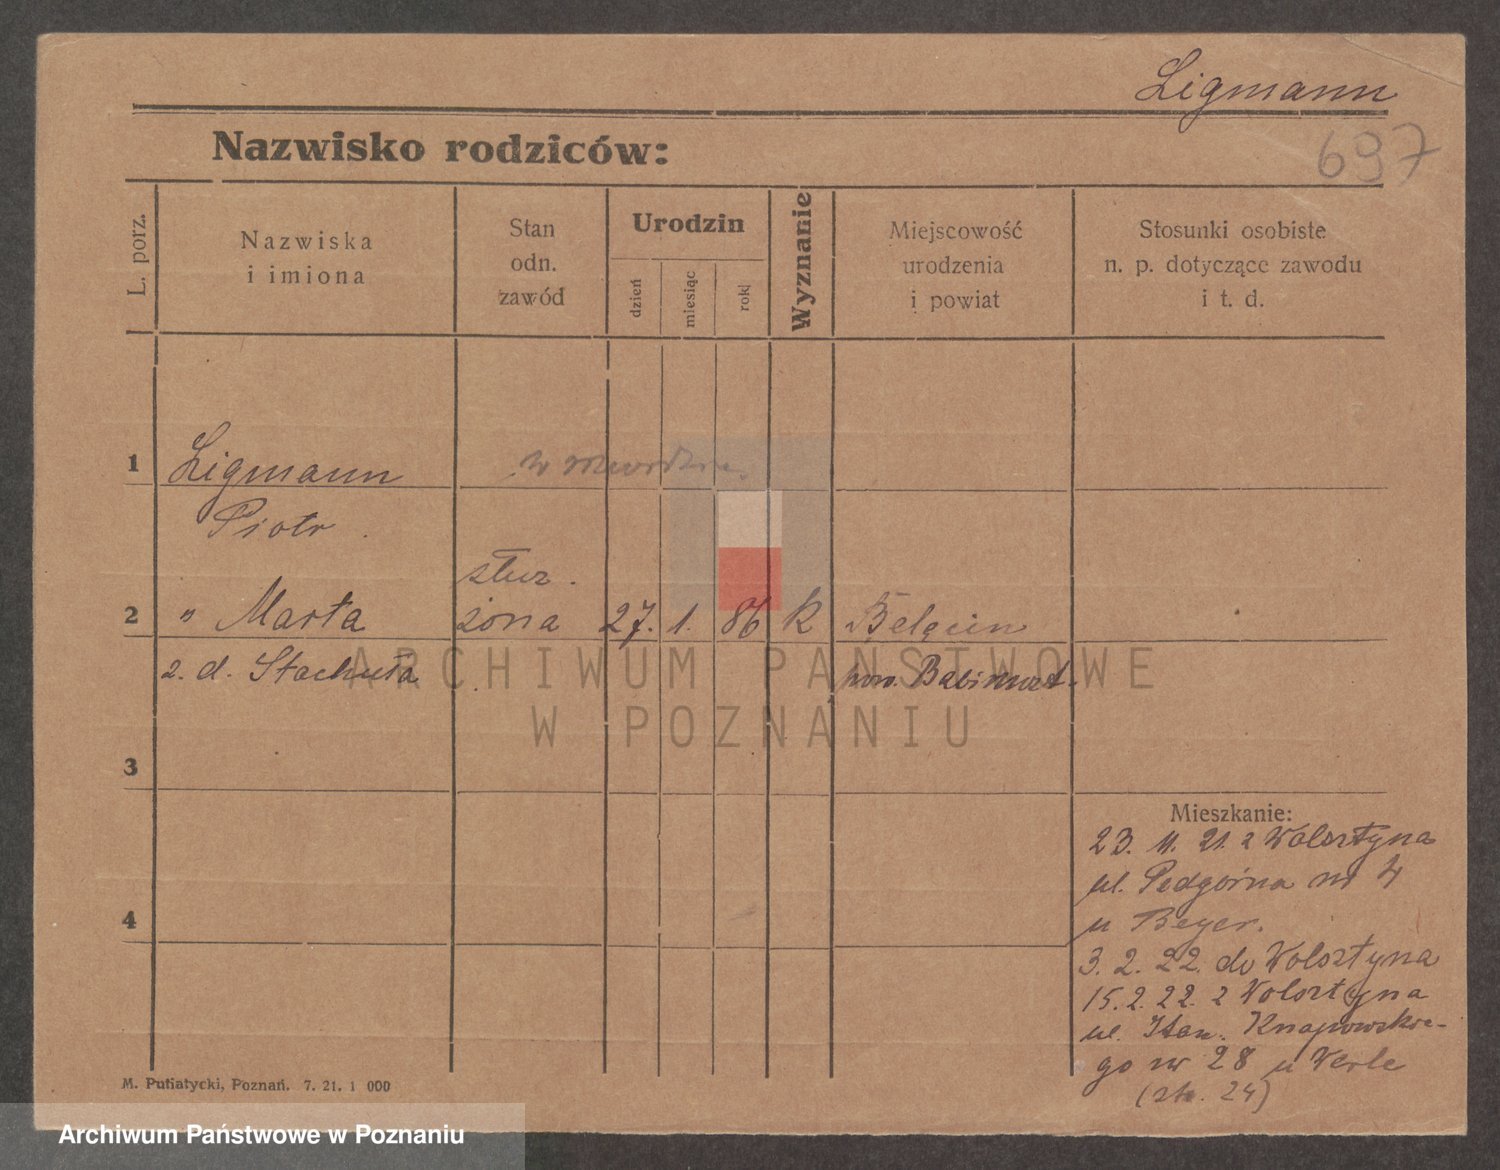 Ligmann
697
Nazwisko rodziców:
L. porz.
Nazwiska
i imiona
Stan
odn.
zawód
Urodzin
dzień
miesiąc
rok
Wyznanie
Miejscowość
urodzenia
i powiat
Stosunki osobiste
n. p. dotyczące zawodu
i t. d.
1 Ligmann
Piotr
służ.
2 " Marta żona 27. 1. 86 k Belęcin
z. d. Stachuła pow. Babimost.
ARCHIWUM PAŃSTWOWE
W POZNANIU
3
Mieszkanie:
23. 11. 21. z Wolsztyna
ul. Podgórna nr 4
u Beyer.
4
3. 2. 22. do Wolsztyna
15. 2. 22. z Wolsztyna
ul. Stan. Knapowskie-
go nr 28 u Werle
(str. 24)
M. Putiatycki, Poznań. 7. 21. 1 000
Archiwum Państwowe w Poznaniu